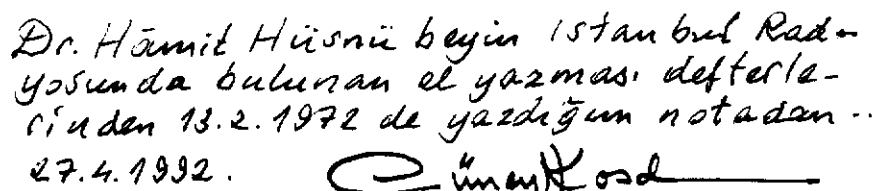 Dr. Hâmit Hüsnü beyin Istanbul Rad-
yosunda bulunan el yazması defterle-
rinden 13.2.1972 de yazdığım notadan..
27.4.1992.